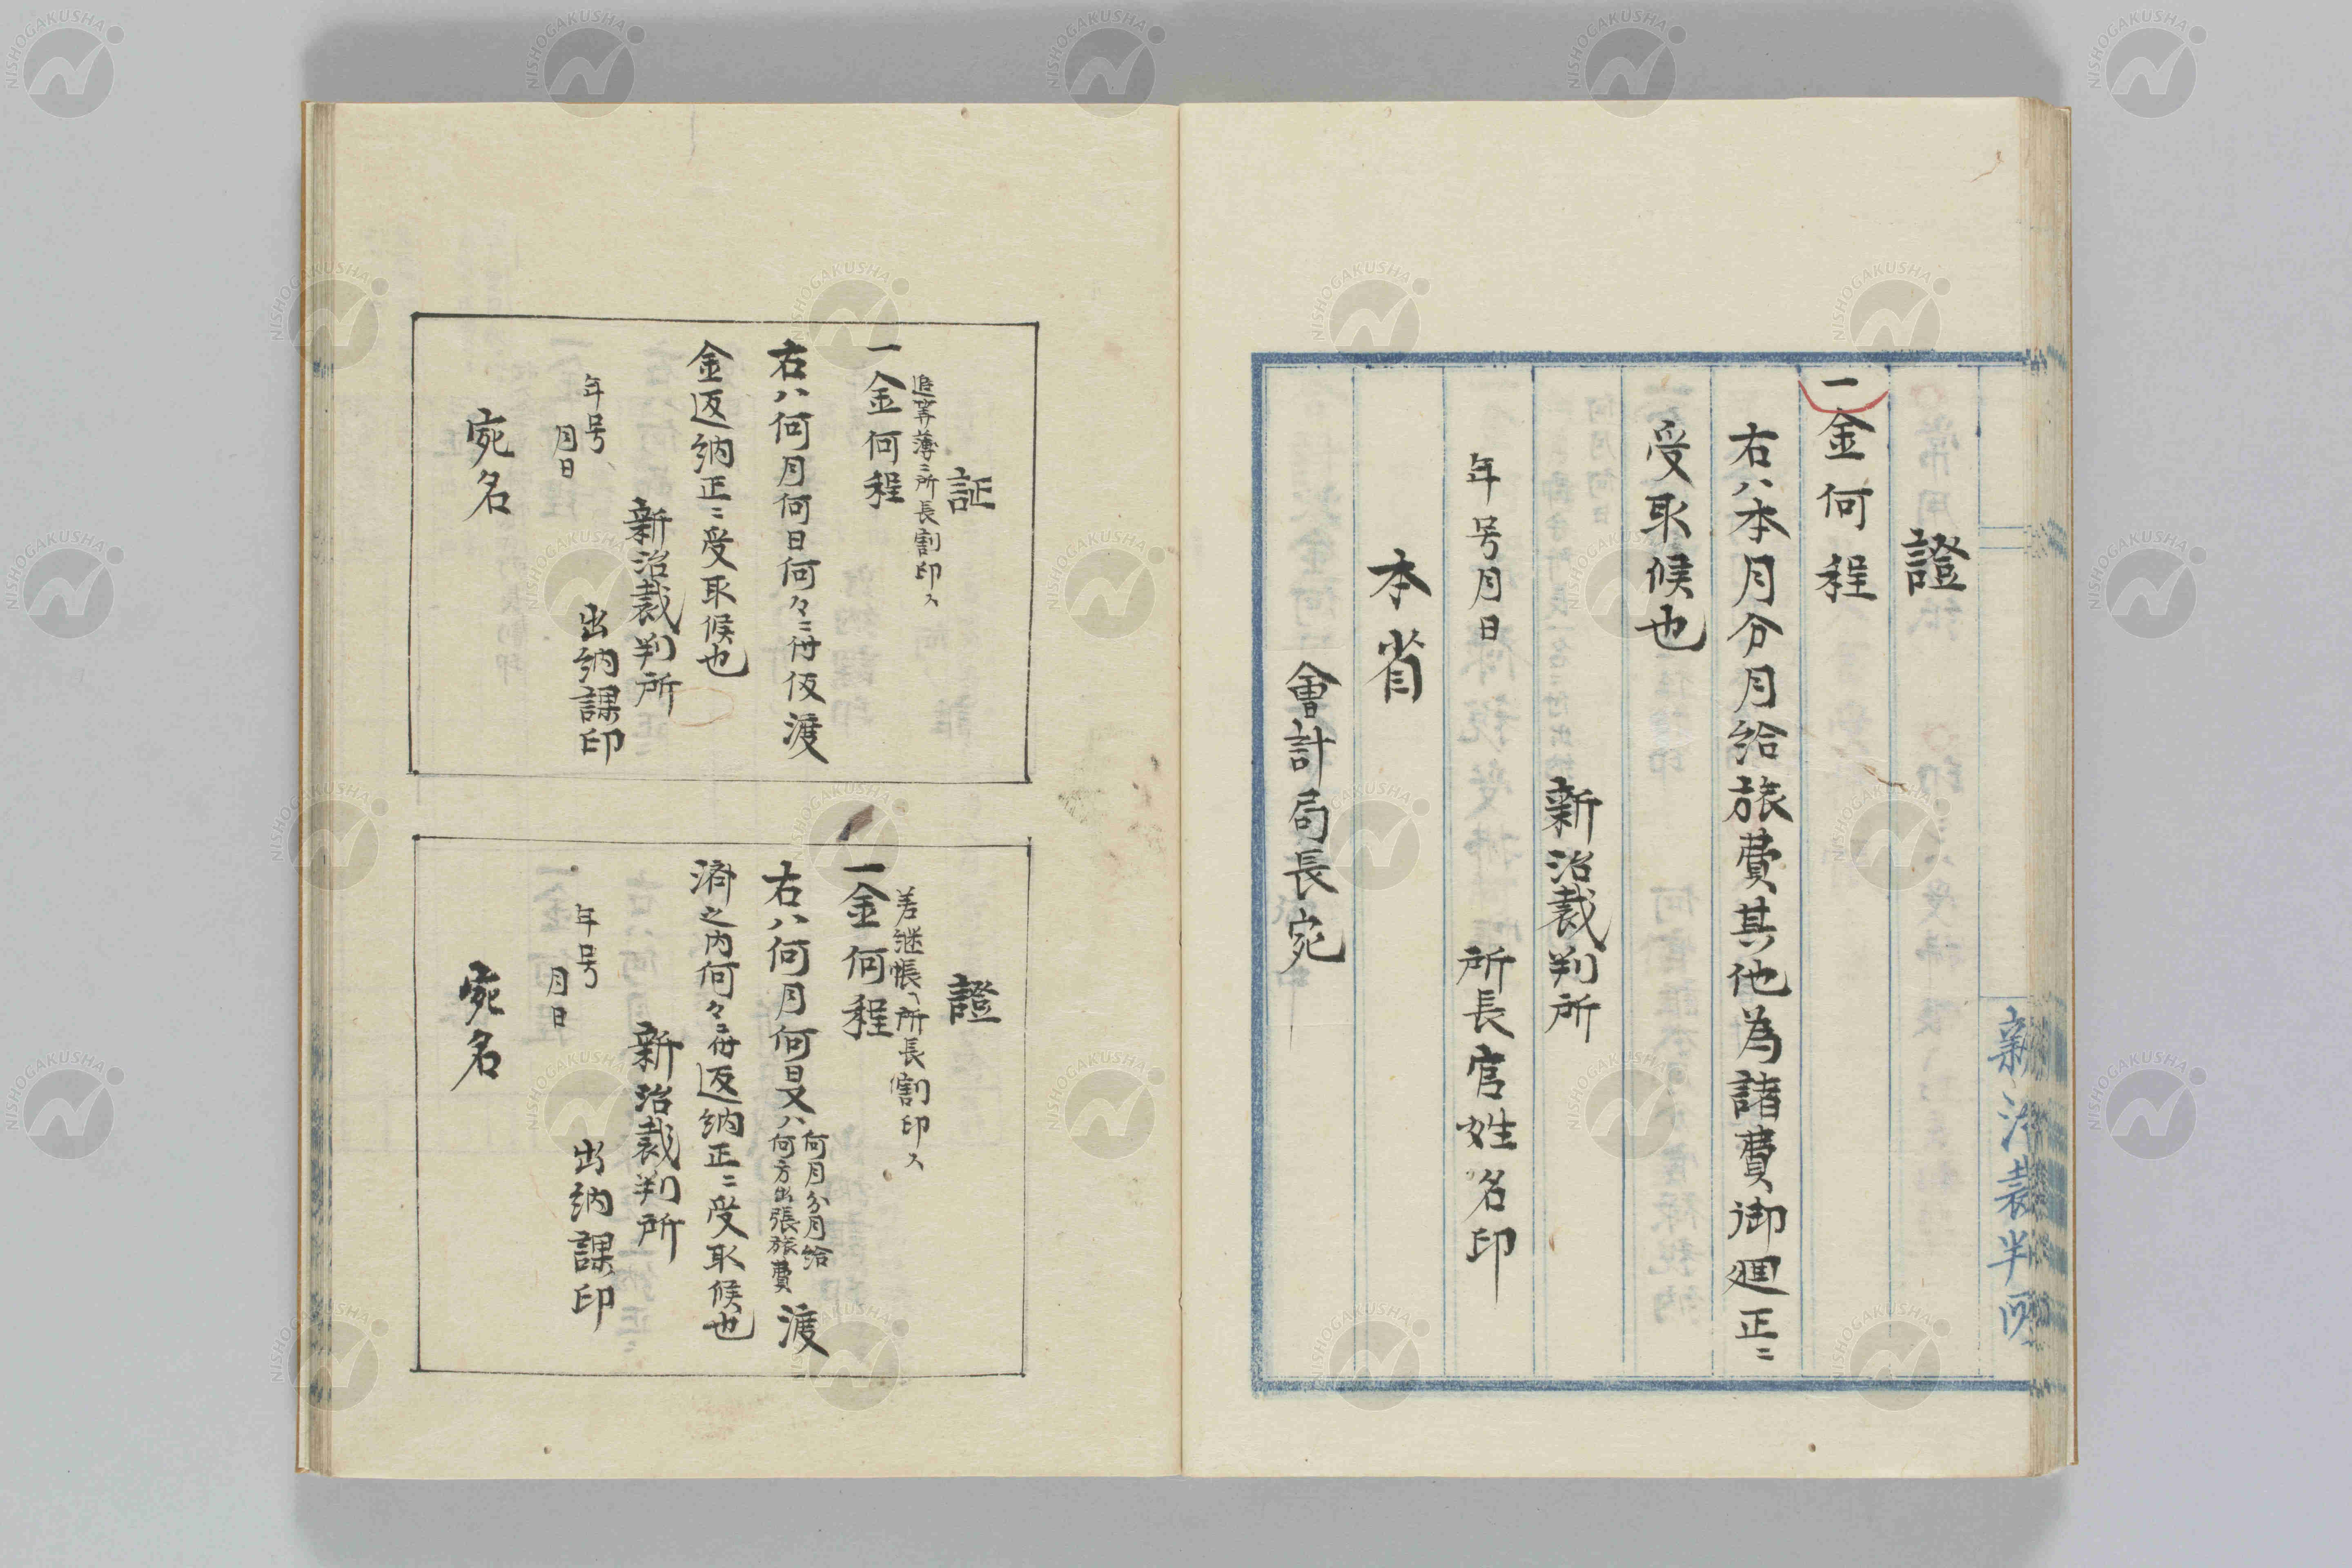 證
一金何程
右ハ本月分月給旅費其他為諸費御廻正ニ
受取候也
年号月日
新治裁判所
所長官姓名印
本省
會計局長宛
新治裁判所
証
追算薄ニ所長割印ス
一金何程
右ハ何月何日何々ニ付仮渡
金返納正ニ受取候也
年号
月日
新治裁判所
出納課印
宛名
證
差継帳ヘ所長割印ス
一金何程
右ハ何月何日又ハ何月分月給
何方出張旅費渡
済之内何々ニ付返納正ニ受取候也
年号
月日
新治裁判所
出納課印
宛名
NISHOGAKUSHA